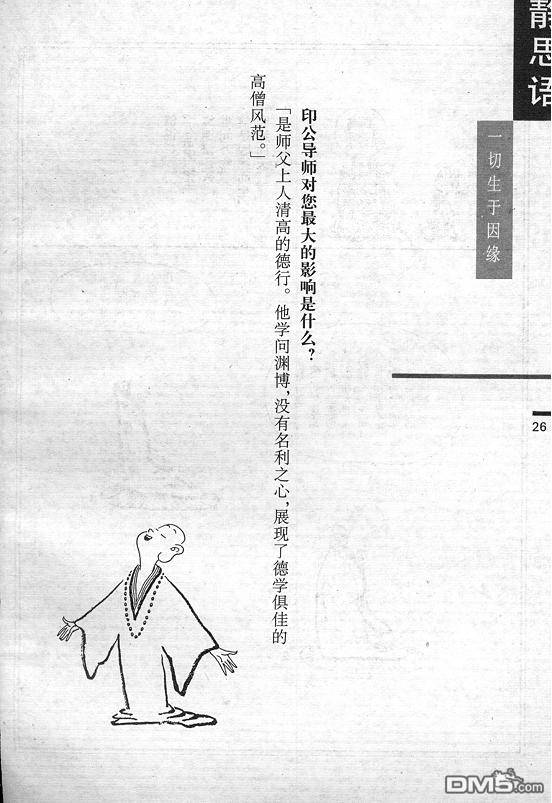 静思语
一切生于因缘
26
印公导师对您最大的影响是什么？
「是师父上人清高的德行。他学问渊博，没有名利之心，展现了德学俱佳的
高僧风范。」
DM5.com